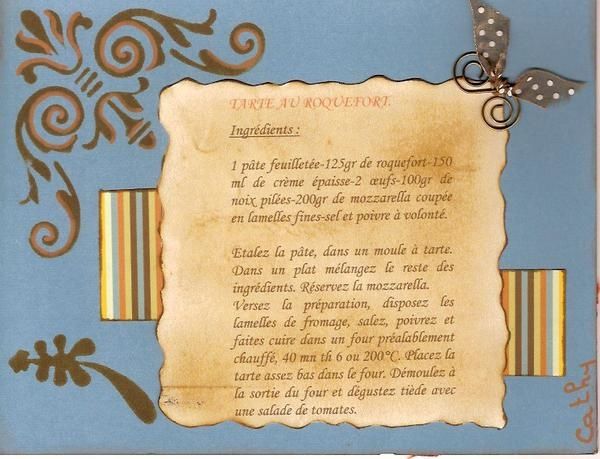 TARTE AU ROQUEFORT.
Ingrédients :
1 pâte feuilletée-125gr de roquefort-150
ml de crème épaisse-2 œufs-100gr de
noix pilées-200gr de mozzarella coupée
en lamelles fines-sel et poivre à volonté.
Etalez la pâte, dans un moule à tarte.
Dans un plat mélangez le reste des
ingrédients. Réservez la mozzarella.
Versez la préparation, disposez les
lamelles de fromage, salez, poivrez et
faites cuire dans un four préalablement
chauffé, 40 mn th 6 ou 200°C. Placez la
tarte assez bas dans le four. Démoulez à
la sortie du four et dégustez tiède avec
une salade de tomates.
Cathy